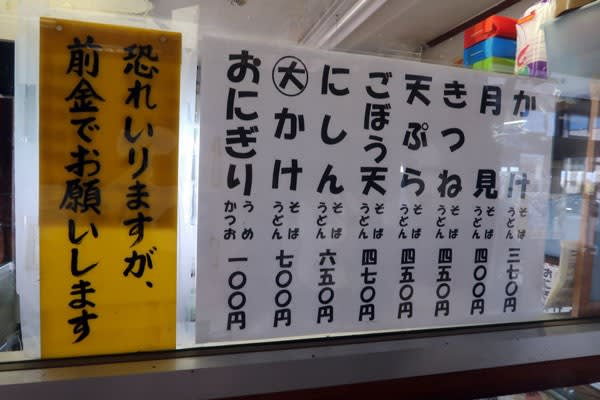 かけ そば うどん 三七〇円
月見 そば うどん 四〇〇円
きつね そば うどん 四五〇円
天ぷら そば うどん 四五〇円
ごぼう天 そば うどん 四七〇円
にしん そば うどん 六五〇円
大かけ そば うどん 七〇〇円
おにぎり うめ かつお 一〇〇円
恐れいりますが、
前金でお願いします